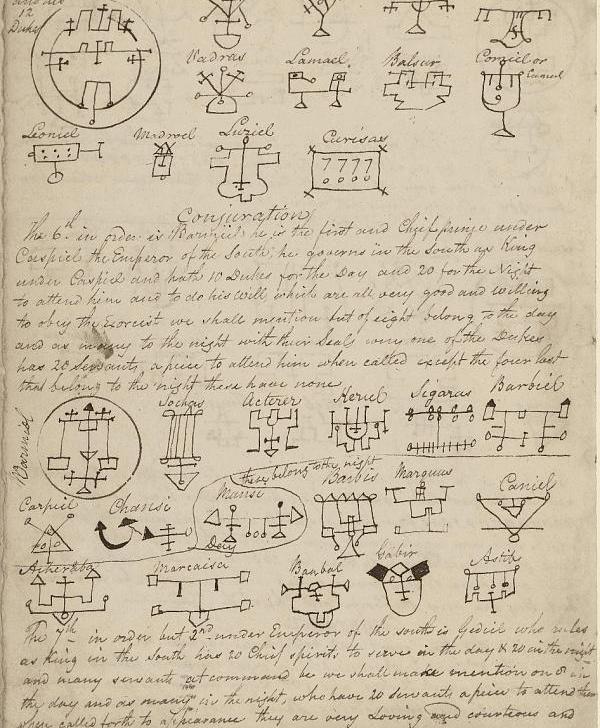 12
Duke
Vadras Lamael Balsur Corviel or
Leoniel Madriel Luziel Curisas
7777
Conjuration
The 6th in order is Barmiel he is the first and Chief prince under
Caspiel the Emperor of the South, he governs in the South as King
under Caspiel and hath 10 Dukes for the Day and 20 for the Night
to attend him and to do his Will which are all very good and willing
to obey the Exorcist we shall mention but of eight belong to the day
and as many to the night with their Seals every one of the Dukes
has 20 Servants a piece to attend him when called except the four last
that belong to the night these have none
Barmiel Sochas Acterer Keriel Sigaras Barbiel
these belong to the night
Carpiel Chansi Mansi Barbis Marquus Caniel
Day
Acheraba Marcaisa Baabal Gabir Astib
The 7th in order but 2nd under Emperor of the south is Gediel who rules
as King in the South has 20 Chief spirits to serve in the day & 20 in the night
and many servants at command be we shall make mention on 8 in
the day and as many in the night, who have 20 servants a piece to attend them
when called forth to appearance they are very Loving and courtious and